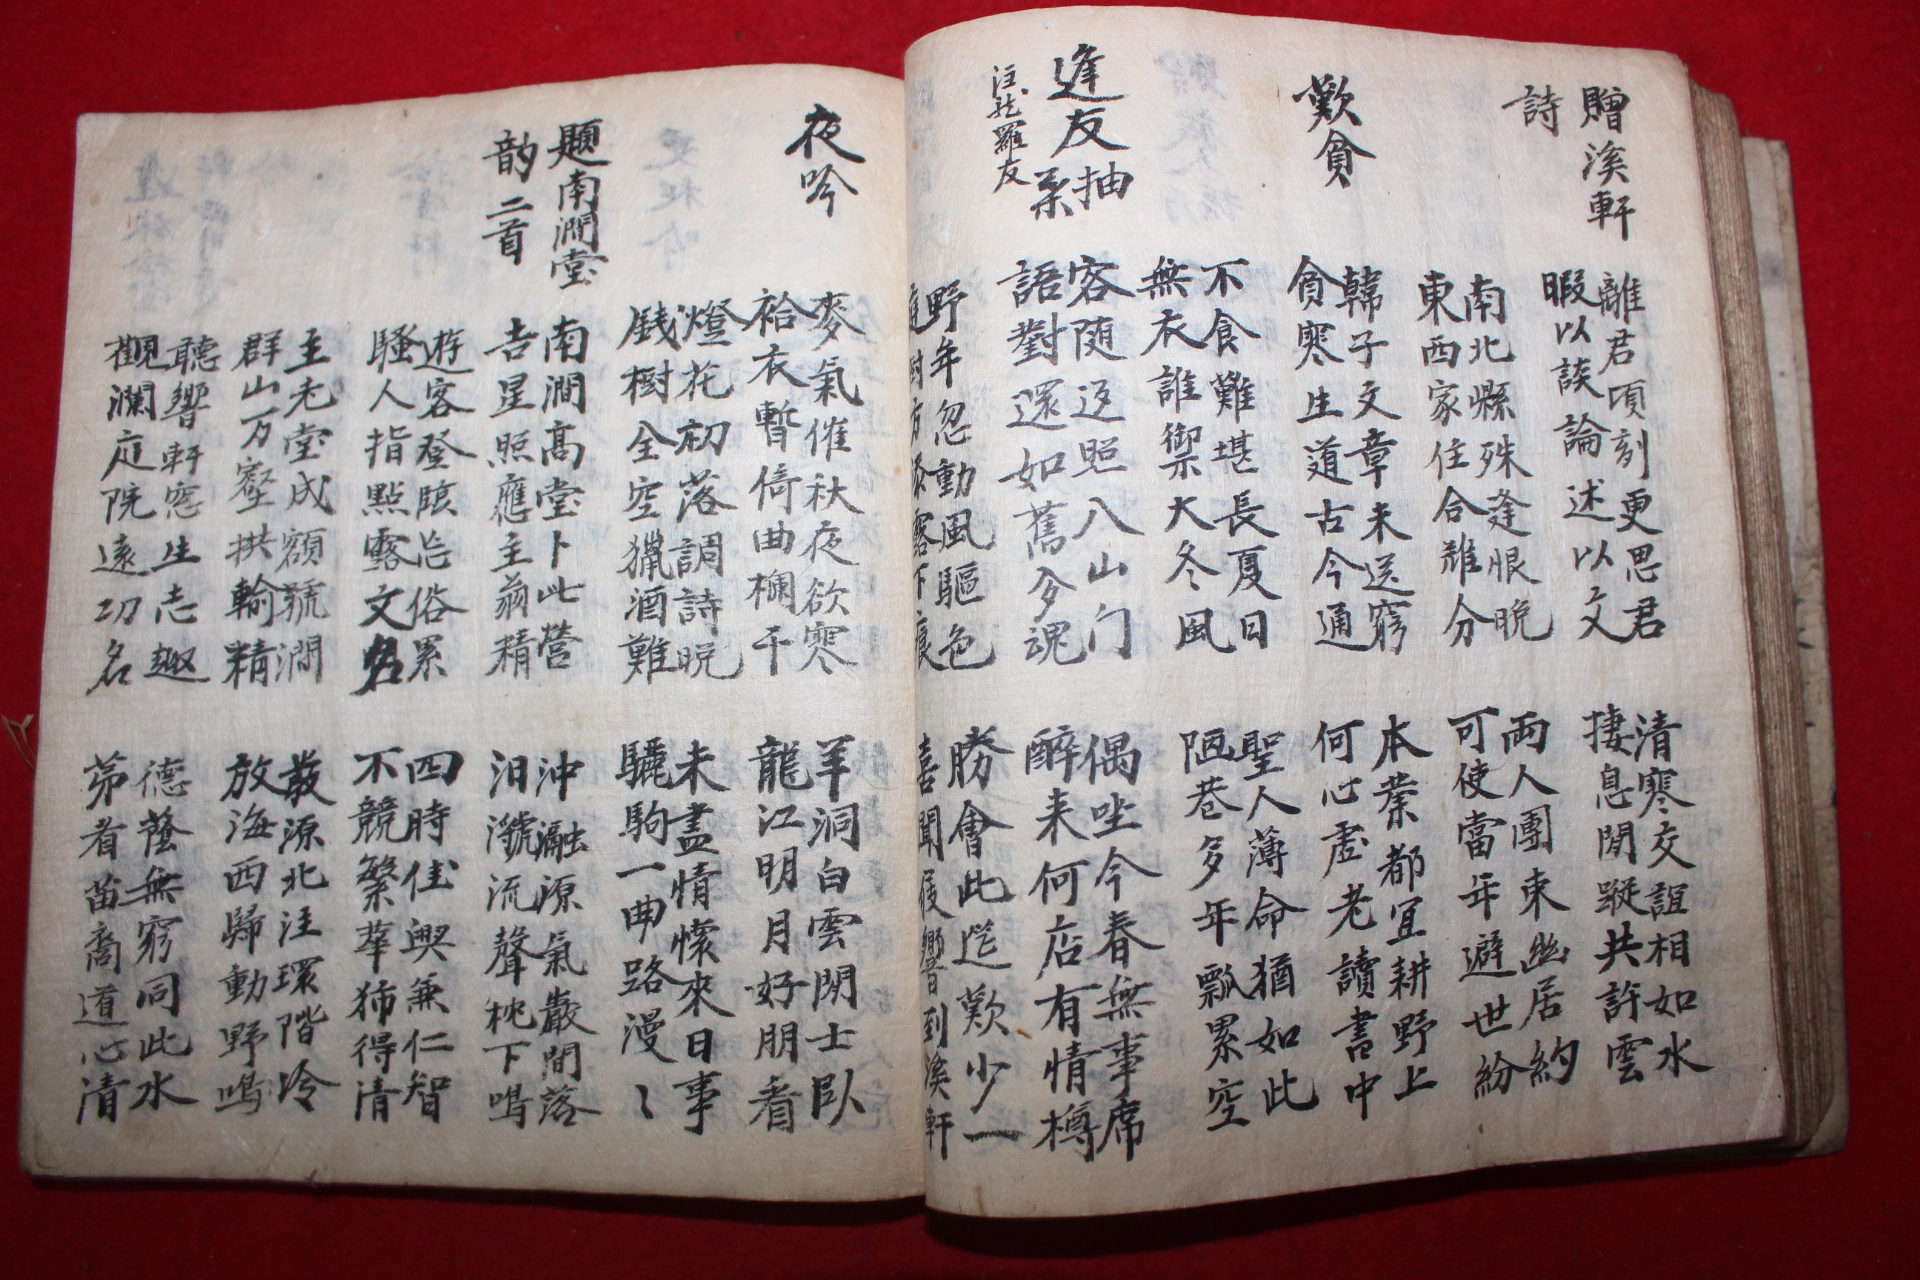 贈溪軒
詩
離君頃刻更思君
暇以談論述以文
清寒交誼相如水
捿息閒蹤共許雲
南北縣殊逢恨晚
東西家住合難分
兩人團東幽居約
可使當年避世紛
歎貧
韓子文章未送窮
貧寒生道古今通
本業都宜耕野上
何心虛老讀書中
不食難堪長夏日
無衣誰禦大冬風
聖人薄命猶如此
陋巷多年瓢累空
逢友抽
柔
羅友
容隨返照入山门
語對還如舊夕魂
偶坐今春無事席
醉来何店有情樽
野年忽動風驅色
勝會此邊歎少一
喜聞 響到溪軒
夜吟
麥氣催秋夜欲寒
袷衣暫倚曲欄干
羊洞白雲閒士臥
龍江明月好朋看
燈花初落調詩晚
錢樹全空獵酒難
未盡情懷來日事
驪駒一曲路漫〻
題南澗堂
韵二首
南澗高堂卜此營
吉星照應主翁精
沖瀜源氣巖間落
汨㶁流聲枕下鳴
遊客登臨忘俗累
騷人指點露文名
四時佳興兼仁智
不競繁華獨得清
主老堂成額號澗
群山万壑拱輸精
發源北注環階冷
放海西歸動野鳴
聽響軒窓生志趣
觀瀾庭院遠功名
德蔭無窮同此水
第看苗裔道心清